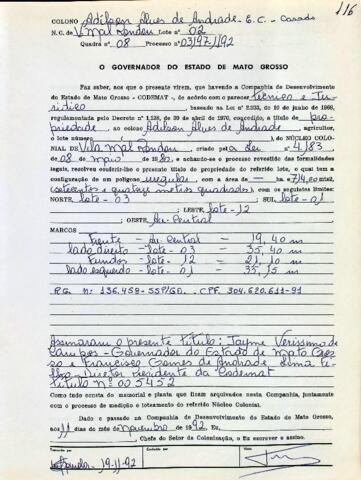 116
COLONO Adilson Alves de Andrade - E.C. - Casado
N. C. de V. Mal. Rondon Lote nº 02
Quadra nº 08 Processo nº 03197/92
O GOVERNADOR DO ESTADO DE MATO GROSSO
Faz saber, aos que a presente virem, que havendo a Companhia de Desenvolvimento
do Estado de Mato Grosso - CODEMAT -, de acordo com o parecer técnico e Ju-
rídico baseado na Lei nº 2.933, de 10 de junho de 1969,
regulamentada pelo Decreto nº 1.128, de 30 de abril de 1970, concedido, a título de pro-
priedade ao colono Adilson Alves de Andrade, agricultor,
o lote número 02 DO NÚCLEO COLO-
NIAL de Vila Mal. Rondon, criado pela Lei nº 4.183
de 08 de maio de 1980, e achando-se o processo revestido das formalidades
legais, resolveu conferir-lhe o presente título de propriedade do referido lote, o qual tem a
configuração de um polígono irregular com a área de 714,00 m²
(setecentos e quatorze metros quadrados) com os seguintes limites:
NORTE, lote - 03 SUL lote 01
; LESTE, lote - 12
; OESTE, Av. Central
MARCOS
Frente - Av. Central - = 19,40 m
lado direito - lote - 03 = 35,40 m
Fundos - lote - 12 = 21,10 m
lado esquerdo - lote - 01 = 35,15 m
R.G. nº 136.459-SSP/GO. CPF. 304.620.611-91
Assinaram o presente título: Jayme Veríssimo de
Campos - Governador do Estado de Mato Gros-
so e Francisco Gomes de Andrade Lima Fi-
lho - Diretor Presidente da Codemat
Título Nº 005452
Como tudo consta do memorial e planta que ficam arquivados nesta Companhia, juntamente
com o processo de medição e loteamento do referido Núcleo Colonial.
Dado e passado na Companhia de Desenvolvimento do Estado de Mato Grosso,
aos 11 dias do mês de novembro de 1992. Eu,
Chefe do Setor de Colonização, o fiz escrever e assino.
Transcrito por
Conferido
Visto
19-11-92